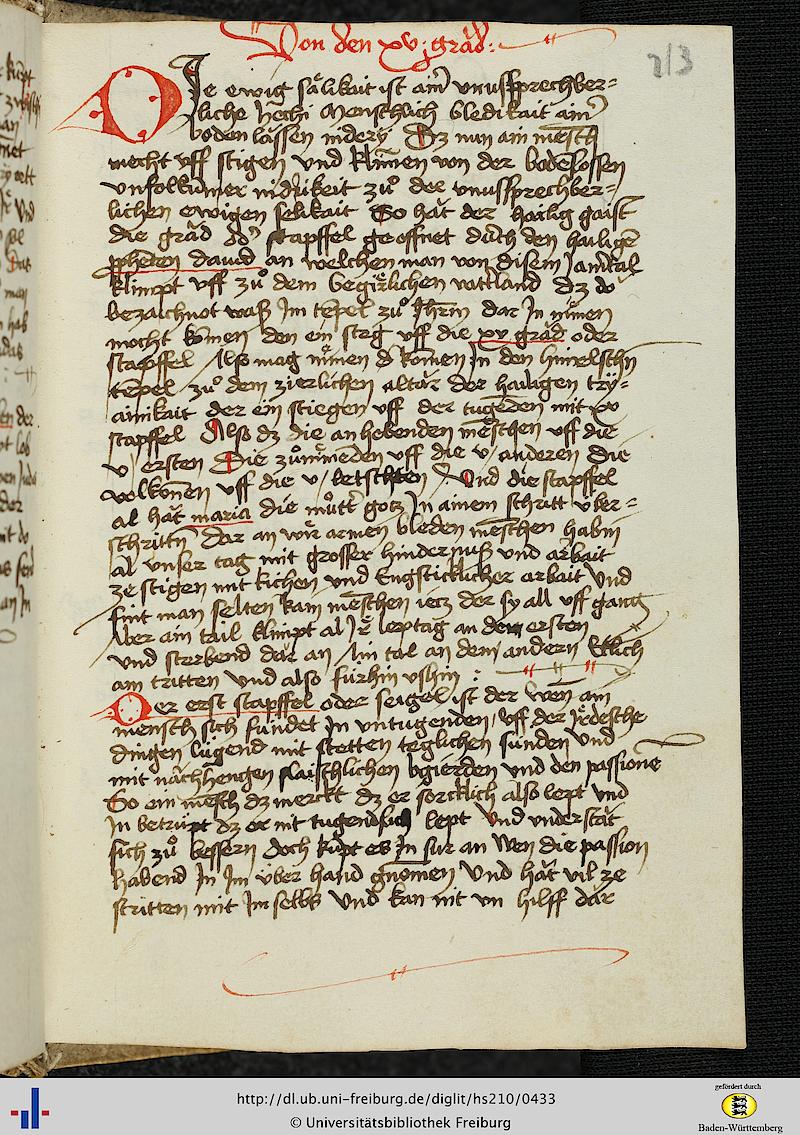 Von den xv grad :
213
DIe ewig sälikait ist ainr vnussprechber=
liche hechi Menschlich bledikait ainr
boden lässen nidery Dz nun ain mēsch
mecht vff stigen vnd klimen von der bodēlossen
vnfolkumer nidrikeit zuo der vnussprechber=
lichen ewigen selikait So hät der hailig gaist
die gräd stapffel geoffnet durch den hailigē
ppheten dauid an welchen man von disem Jamtal
klimpt vff zuo dem begirlichen vatterland dz do
bezaichnot waß Im tēpel zuo Jhrlm dar In niemen
mocht komen den ein steg vff die xv gräd oder
stapffel Also mag niemen komen In den himelschn
tēpel zuo dem zierlichen altär der hailagen try=
ainikait der ein stiegen vff der tugenden mit xv
stapffel Also dz die an hebenden mēschen vff die
v ersten Die zuonemeden vff die v anderen die
volkomen vff die v letschten Vnd die stapffel
al hät maria die muottr gotz In ainem schritt vber=
schrittn Dar an wir armen bleden menschen habin
al vnser tag mit grosser hindernuß vnd arbait
ze stigen mit kichen vnd Engsticklicher arbeit Vnd
fint man selten kain mēschen iecz der sy all vff gang
Aber ain tail klimpt al Ir leptag an dem ersten
vnd sterbend dar an Ain tal an dem andern Etlich
am tritten vnd also fürhin vshin :
Der erst stapffel oder seigel ist der wen ain
mensch sich fundet In vntugenden / vff der Irdesche
dingen lugend mit stetten teglichen sunden vnd
mit nachhengen flaischlichen bgierden vnd den passione
So ein mēsch dz merckt dz er sorcklich also lept vnd
In betrupt dz er nit tugendlich lept vnd vnderstät
sich zuo bessern doch kupt es In sur an wen die passion
habend In Im vber hand gnomen Vnd hät vil ze
stritten mit Im selbs Vnd kan nit vn hilff dar
http://dl.ub.uni-freiburg.de/diglit/hs210/0433
© Universitätsbibliothek Freiburg
gefördert durch
Baden-Württemberg